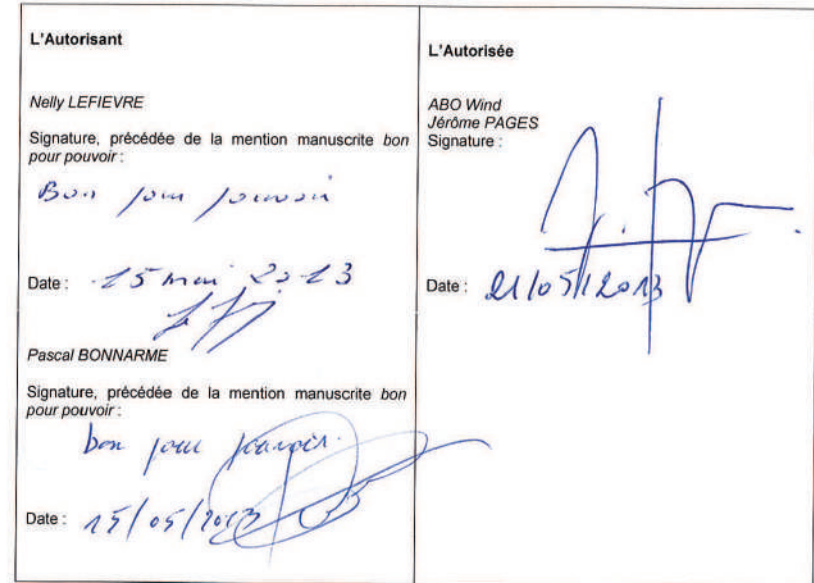 L'Autorisant
Nelly LEFIEVRE
Signature, précédée de la mention manuscrite bon
pour pouvoir :
Bon pour pouvoir
Date : 15 mai 2013
Pascal BONNARME
Signature, précédée de la mention manuscrite bon
pour pouvoir :
bon pour pouvoir.
Date : 15/05/2013
L'Autorisée
ABO Wind
Jérôme PAGES
Signature :
Date : 21/05/2013